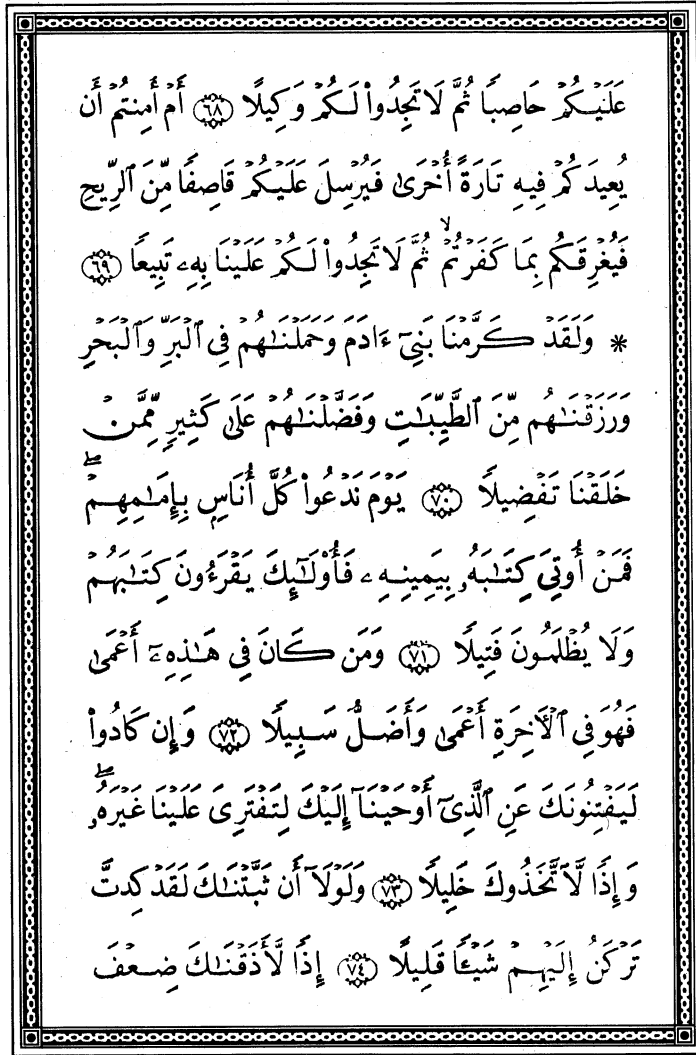 عَلَيۡكُمۡ حَاصِبٗا ثُمَّ لَا تَجِدُواْ لَكُمۡ وَكِيلًا ٦٨ أَمۡ أَمِنتُمۡ أَن
يُعِيدَكُمۡ فِيهِ تَارَةً أُخۡرَىٰ فَيُرۡسِلَ عَلَيۡكُمۡ قَاصِفٗا مِّنَ ٱلرِّيحِ
فَيُغۡرِقَكُم بِمَا كَفَرۡتُمۡ ۙ ثُمَّ لَا تَجِدُواْ لَكُمۡ عَلَيۡنَا بِهِۦ تَبِيعٗا ٦٩
* وَلَقَدۡ كَرَّمۡنَا بَنِيٓ ءَادَمَ وَحَمَلۡنَٰهُمۡ فِي ٱلۡبَرِّ وَٱلۡبَحۡرِ
وَرَزَقۡنَٰهُم مِّنَ ٱلطَّيِّبَٰتِ وَفَضَّلۡنَٰهُمۡ عَلَىٰ كَثِيرٖ مِّمَّنۡ
خَلَقۡنَا تَفۡضِيلٗا ٧٠ يَوۡمَ نَدۡعُواْ كُلَّ أُنَاسِۭ بِإِمَٰمِهِمۡۖ
فَمَنۡ أُوتِيَ كِتَٰبَهُۥ بِيَمِينِهِۦ فَأُوْلَٰٓئِكَ يَقۡرَءُونَ كِتَٰبَهُمۡ
وَلَا يُظۡلَمُونَ فَتِيلٗا ٧١ وَمَن كَانَ فِي هَٰذِهِۦٓ أَعۡمَىٰ
فَهُوَ فِي ٱلۡأٓخِرَةِ أَعۡمَىٰ وَأَضَلُّ سَبِيلٗا ٧٢ وَإِن كَادُواْ
لَيَفۡتِنُونَكَ عَنِ ٱلَّذِيٓ أَوۡحَيۡنَآ إِلَيۡكَ لِتَفۡتَرِيَ عَلَيۡنَا غَيۡرَهُۥۖ
وَإِذٗا لَّٱتَّخَذُوكَ خَلِيلٗا ٧٣ وَلَوۡلَآ أَن ثَبَّتۡنَٰكَ لَقَدۡ كِدتَّ
تَرۡكَنُ إِلَيۡهِمۡ شَيۡـٔٗا قَلِيلًا ٧٤ إِذٗا لَّأَذَقۡنَٰكَ ضِعۡفَ